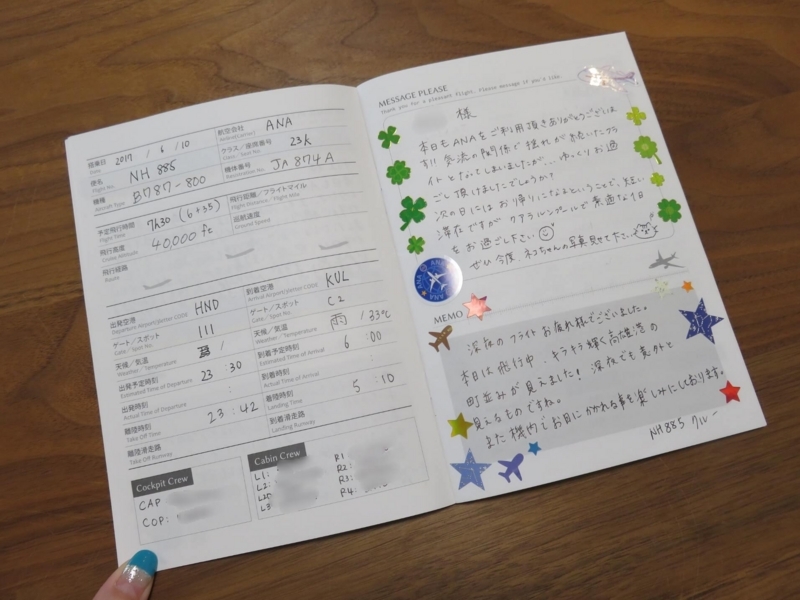 搭乗日 2017 / 6 / 10
Date
航空会社 ANA
Airline(Carrier)
便名 NH 885
Flight No.
クラス／座席番号 23K
Class / Seat No.
機種 B787-800
Aircraft Type
機体番号 JA 874A
Registration No.
予定飛行時間 7h30 (6+35)
Flight Time
飛行距離／フライトマイル
Flight Distance / Flight Mile
飛行高度 40,000 ft
Cruise Altitude
巡航速度
Ground Speed
飛行経路
Route
出発空港 HND
Departure Airport/3letter CODE
到着空港 KUL
Arrival Airport/3letter CODE
ゲート／スポット 111
Gate / Spot No.
ゲート／スポット C2
Gate / Spot No.
天候／気温 /
Weather / Temperature
天候／気温 雨 / 33℃
Weather / Temperature
出発予定時刻 23 : 30
Estimated Time of Departure
到着予定時刻 6 : 00
Estimated Time of Arrival
出発時刻 :
Actual Time of Departure
到着時刻 :
Actual Time of Arrival
離陸時刻 23 : 42
Take Off Time
着陸時刻 5 : 10
Landing Time
離陸滑走路
Take Off Runway
到着滑走路
Landing Runway
Cockpit Crew
CAP
COP:
Cabin Crew
L1: R1
L2: R2:
R3:
L3 R4:
MESSAGE PLEASE
Thank you for a pleasant flight. Please message if you'd like.
様
本日もANAをご利用頂きありがとうございま
す!! 気流の関係で揺れが続いたフラ
イトとなってしまいましたが… ゆっくりお過
ごし頂けましたでしょうか？
次の日にはお帰りになるということで、短い
滞在ですがクアラルンプールで素敵な1日
をお過ご下さい
ぜひ今度、ネコちゃんの写真見せて下さい
ANA
MEMO
深夜のフライトお疲れ様でございました。
本日は飛行中、キラキラ輝く高雄港の
町並みが見えました！深夜でも意外と
見えるものですね。
また機内でお目にかかれる事を楽しみにしております。
NH885 クルー